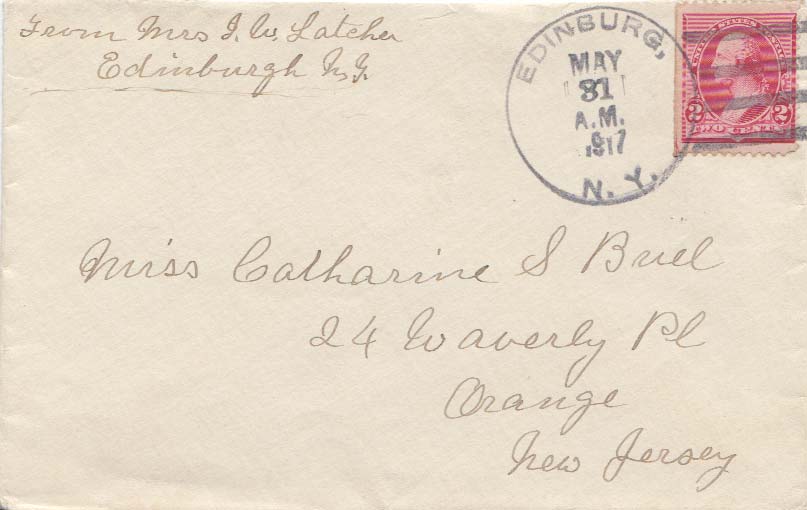 From Mrs J. W. Latcher
Edinburgh N.Y.
EDINBURG,
MAY
31
A.M.
1917
N. Y.
UNITED STATES POSTAGE
2 2
TWO CENTS
Miss Catharine S Buel
24 Waverly Pl
Orange
New Jersey